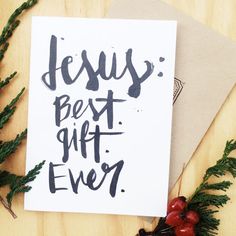 Jesus:
Best.
Gift.
Ever.